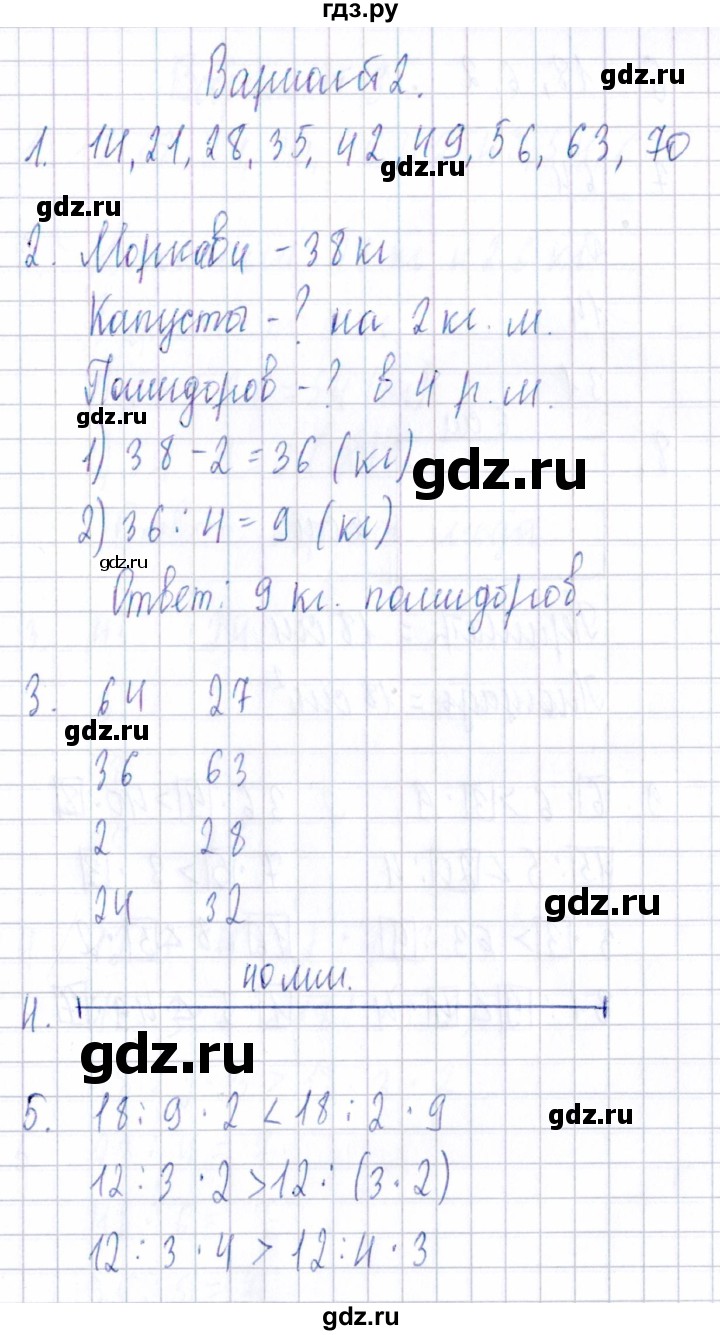 гдз.ру
Вариант 2.
gdz.ru
1. 14, 21, 28, 35, 42, 49, 56, 63, 70
gdz.ru
gdz.ru
2. Моркови - 38 кг
Капусты - ? на 2 кг. м.
Помидоров - ? в 4 р. м.
gdz.ru
1) 38 - 2 = 36 (кг)
gdz.ru
2) 36 : 4 = 9 (кг)
gdz.ru
Ответ: 9 кг. помидоров.
3. 64 27
gdz.ru
36 63
2 28
24 32
gdz.ru
40 мм.
4.
gdz.ru
5. 18 : 9 · 2 < 18 : 2 · 9
gdz.ru
12 : 3 · 2 > 12 : (3 · 2)
12 : 3 · 4 > 12 : 4 · 3
gdz.ru